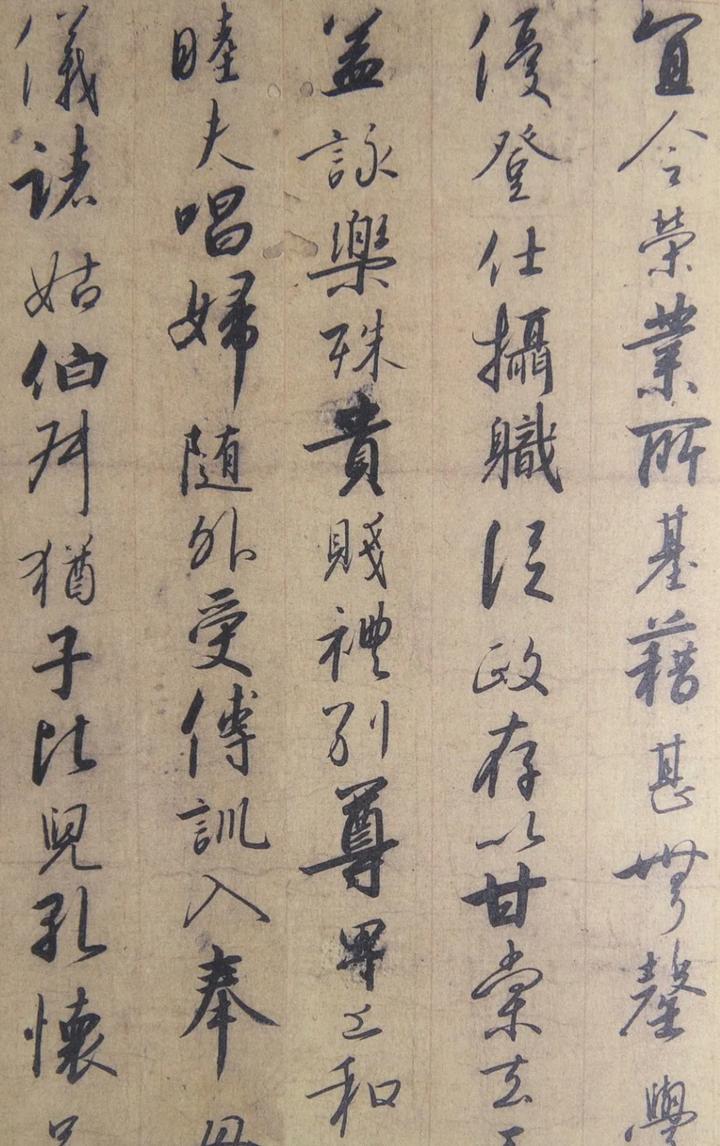 宜令榮業所基藉甚無罄學
優登仕攝職従政存以甘棠去
益詠樂殊貴賤禮別尊卑上和
睦夫唱婦随外受傅訓入奉母
儀諸姑伯叔猶子比兒孔懷